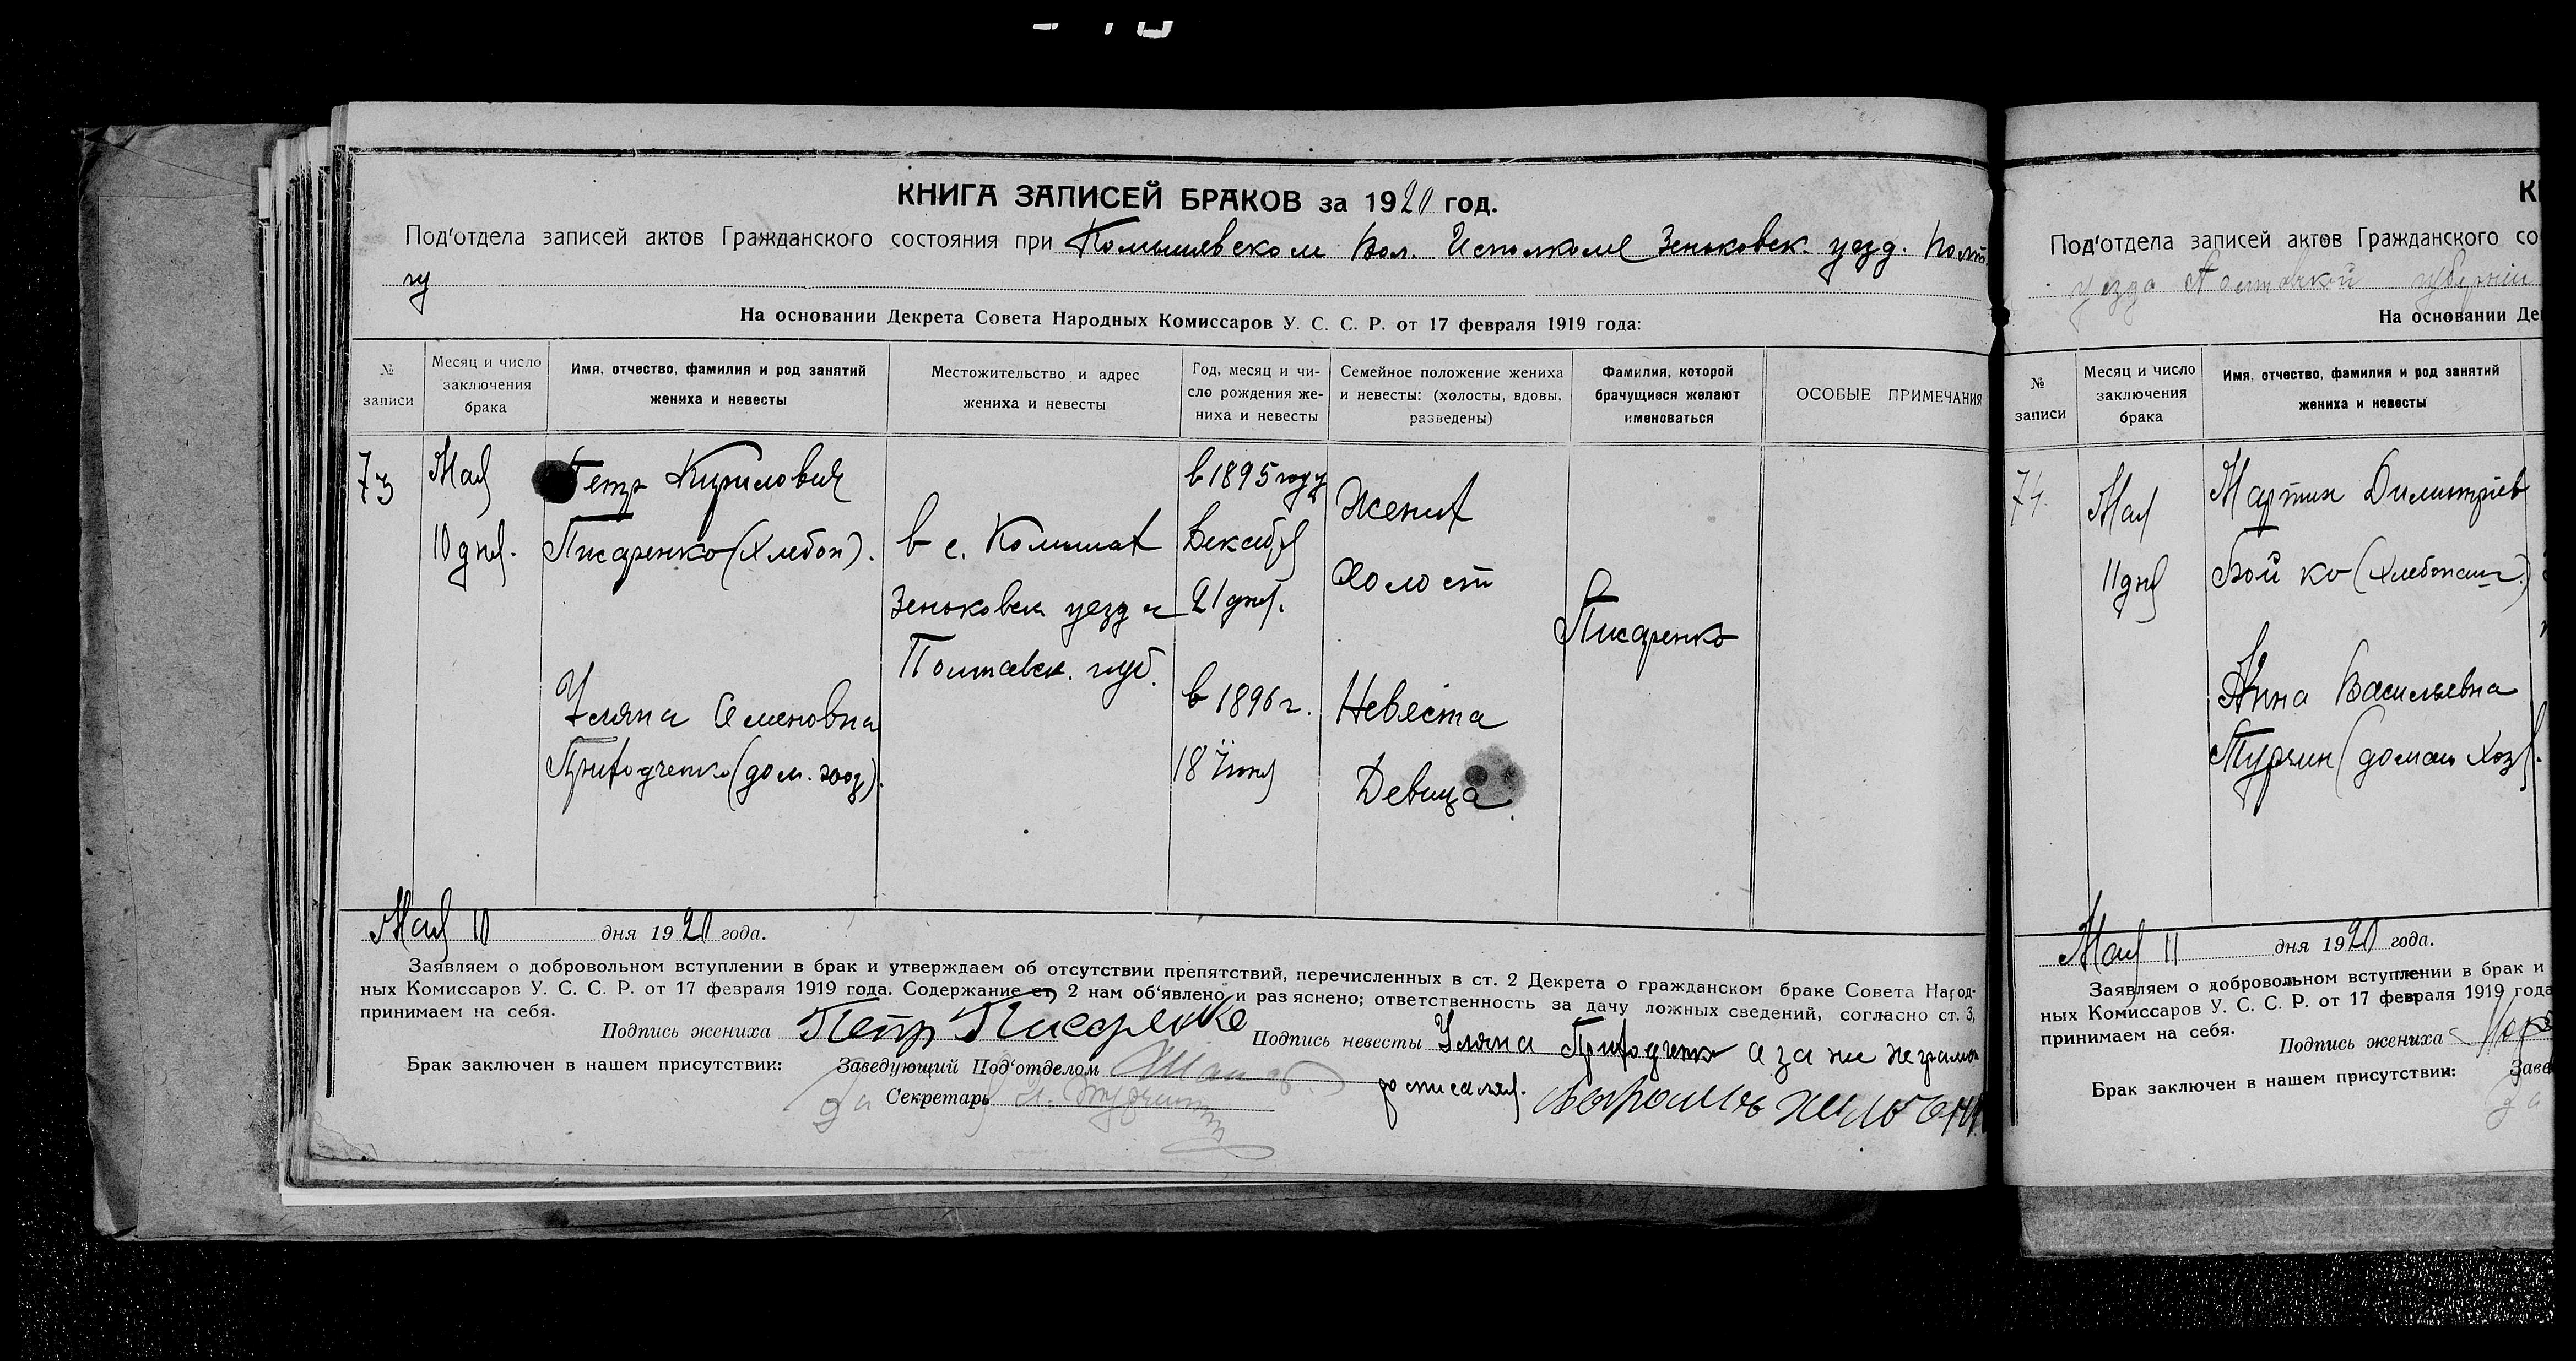 КНИГА ЗАПИСЕЙ БРАКОВ за 1920 год.
Под'отдела записей актов Гражданского состояния при Комышевском Вол. Исполкоме Зеньковск. уезд. Полт.
гу
На основании Декрета Совета Народных Комиссаров У. С. С. Р. от 17 февраля 1919 года:
№ записи
Месяц и число заключения брака
Имя, отчество, фамилия и род занятий жениха и невесты
Местожительство и адрес жениха и невесты
Год, месяц и число рождения жениха и невесты
Семейное положение жениха и невесты: (холосты, вдовы, разведены)
Фамилия, которой брачущиеся желают именоваться
ОСОБЫЕ ПРИМЕЧАНИЯ
73
Мая
10 дня.
Петр Кирилович
Писаренко (хлебоп).
Уляна Семеновна
Приходченко (дом. хоз).
в с. Комышах
Зеньковск уезда
Полтавск. губ.
в 1895 году
Декабря
21 дня.
в 1896 г.
18 Июня
Жених
Холост
Невеста
Девица.
Писаренко
Мая 10 дня 1920 года.
Заявляем о добровольном вступлении в брак и утверждаем об отсутствии препятствий, перечисленных в ст. 2 Декрета о гражданском браке Совета Народ-
ных Комиссаров У. С. С. Р. от 17 февраля 1919 года. Содержание ст, 2 нам об'явлено и раз'яснено; ответственность за дачу ложных сведений, согласно ст. 3,
принимаем на себя.
Подпись жениха Петр Писаренко Подпись невесты Уляна Приходченко а за не неграмот
Брак заключен в нашем присутствии: Заведующий Под'отделом
росписался.
За Секретарь
К
Под'отдела записей актов Гражданского со
уезда Полтавской губернии
На основании Де
№ записи
Месяц и число заключения брака
Имя, отчество, фамилия и род занятий жениха и невесты
74.
Мая
11 дня
Мартин Димитриев
Бойко (хлебопаш.)
Анна Васильевна
Турчин (домаш хоз).
Мая 11 дня 1920 года.
Заявляем о добровольном вступлении в брак и
ных Комиссаров У. С. С. Р. от 17 февраля 1919 года
принимаем на себя.
Подпись жениха
Брак заключен в нашем присутствии: Заве
За